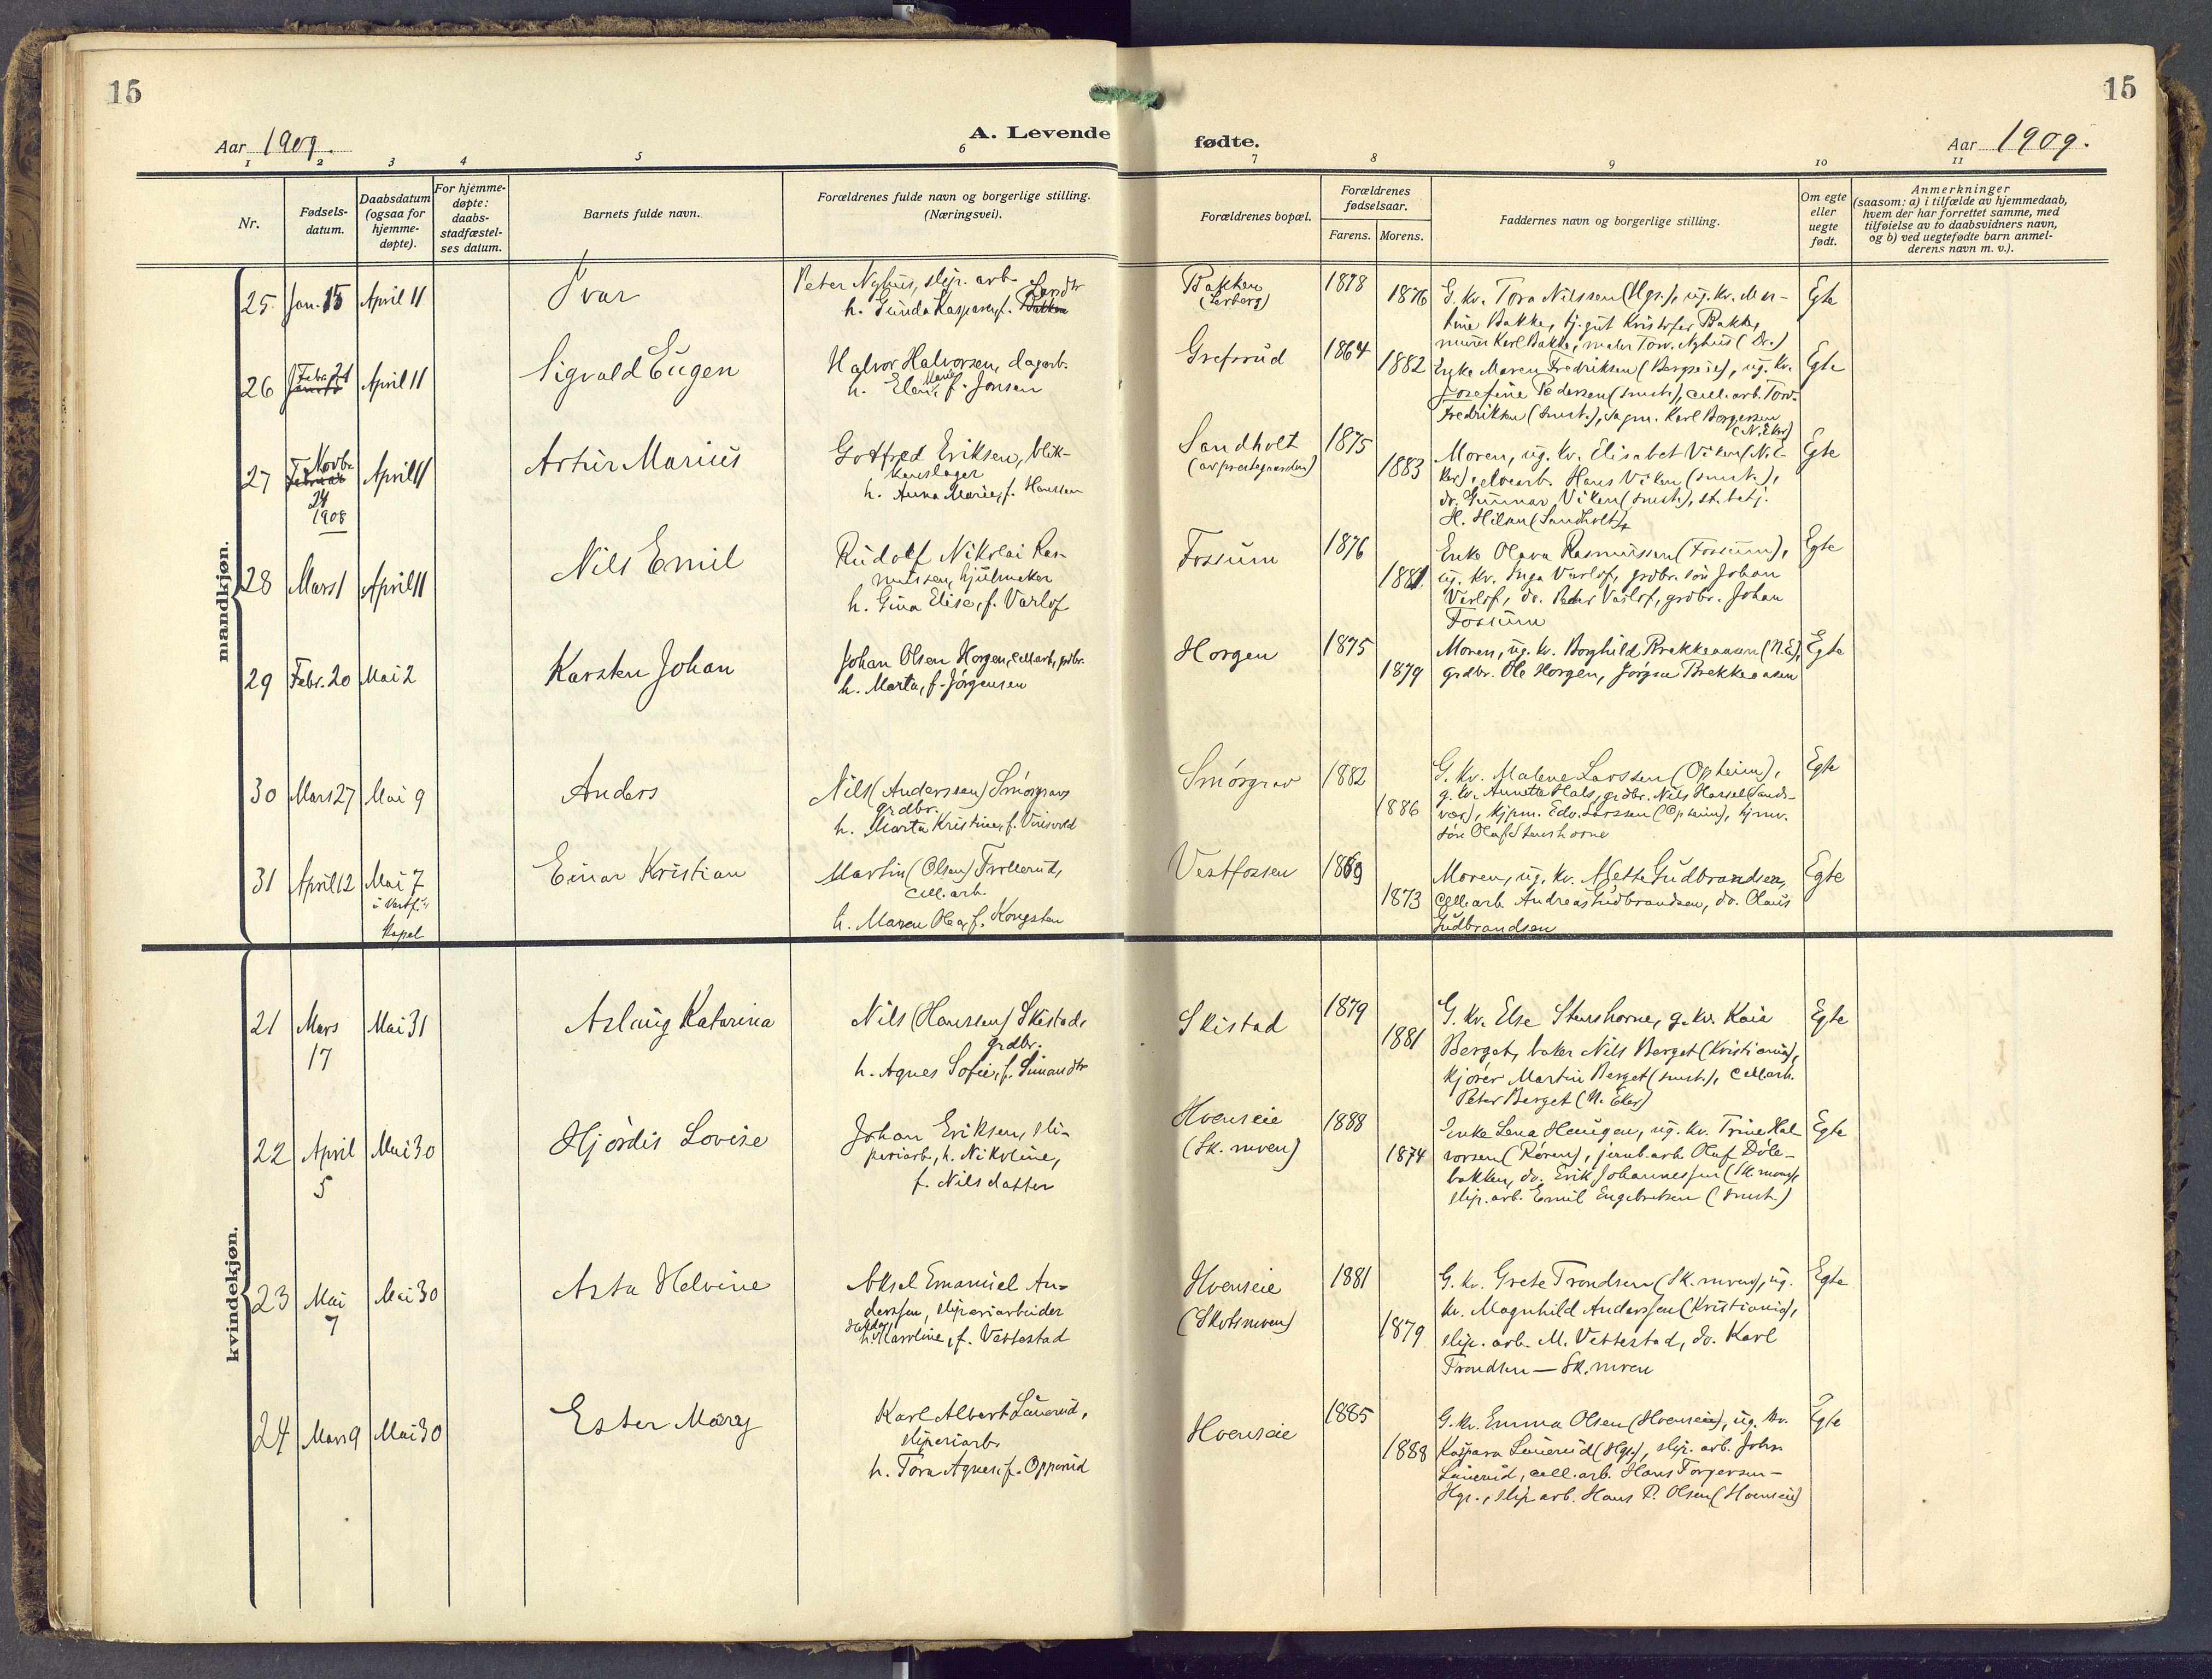 15
15
Aar 1909.
A. Levende fødte.
Aar 1909.
1 2 3 4 5 6 7 8 9 10 11
Nr.
Fødsels-
datum.
Daabsdatum
(ogsaa for
hjemme-
døpte).
For hjemme-
døpte:
daabs-
stadfæstel-
ses datum.
Barnets fulde navn.
Forældrenes fulde navn og borgerlige stilling.
(Næringsvei).
Forældrenes bopæl.
Forældrenes
fødselsaar.
Farens. Morens.
Faddernes navn og borgerlige stilling.
Om egte
eller
uegte
født.
Anmerkninger
(saasom: a) i tilfælde av hjemmedaab,
hvem der har forrettet samme, med
tilføielse av to daabsvidners navn,
og b) ved uegtefødte barn anmel-
derens navn m. v.).
mandkjøn.
25 Jan. 15 April 11
Ivar
Peter Nyhus, slip. arb.
h. Gunda Kaspara, f. Bakken
Bakken
(Lerberg)
1878
1876
G. kv. Tora Nilssen (Hgs.), ug. kv. Mar-
tine Bakke, tj.gut Kristofer Bakke,
murer Karl Bakke, maler Torv. Nyhus (Dr.)
Egte
26 Febr. 21 April 11
Sigvald Eugen
Halvor Halvorsen, dagarb.
h. Elen Marie, f. Jonsen
Grefsrud
1864
1882
Enke Maren Fredriksen (Bergseie), ug. kv.
Josefine Pedersen (smst.), cell. arb. Torv.
Fredriksen (smst.), sagm. Karl Borgersen
(N. Eker)
Egte
27 Novbr.
24
1908
April 11
Artur Marius
Gotfred Eriksen, blik-
kenslager
h. Anna Marie, f. Hanssen
Sandholt
(av prestegaarden)
1875
1883
Moren, ug. kv. Elisabet Viken (N. E-
ker), elvearb. Hans Viken (smst.),
do. Gunnar Viken (smst.), st. betj.
H. Hilan (Sandholt)
Egte
28 Mars 1 April 11
Nils Emil
Rudolf Nikolai Ras-
mussen, hjulmaker
h. Gina Elise, f. Varlof
Fossum
1876
1881.
Enke Olava Rasmussen (Fossum),
ug. kv. Inga Varlof, grdbr. søn Johan
Varlof, do. Peder Varlof, grdbr. Johan
Fossum
Egte
29 Febr. 20 Mai 2
Karsten Johan
Johan Olsen Horgen, cell.arb., grdbr.
h. Marta, f. Jørgensen
Horgen
1875
1879
Moren, ug. kv. Borghild Brekkeaasen (N.E),
grdbr. Ole Horgen, Jørgen Brekkeaasen
Egte
30 Mars 27 Mai 9
Anders
Nils (Anderssen) Smørgrav
grdbr.
h. Marta Kristine, f.
Smørgrav
1882
1886
G. kv. Malene Larssen (Opheim),
g. kv. Annette Hals, grdbr. Nils Hassel (Sands-
vær), kjpm. Edv. Larssen (Opheim),
søn Olaf Stenshorne
Egte
31 April 12 Mai 7
i Vestf.
Kapel
Einar Kristian
Martin (Olsen) Trollerud,
cell. arb.
h. Maren Olea, f. Kongsten
Vestfossen
1869
1873
Moren, ug. kv. Mette Gudbrandsen,
cell.arb Andreas Gudbrandsen, do. Olaus
Gudbrandsen
Egte
kvindekjøn.
21 Mars
17
Mai 31
Aslaug Katarina
Nils (Hanssen) Skistad,
grdbr.
h. Agnes Sofie, f. Simensdtr
Skistad
1879
1881
G. kv. Else Stenshorne, g. kv. Kaia
Berget, baker Nils Berget (Kristiania),
kjører Martin Berget (smst.), cell.arb.
Peter Berget (N. Eker)
Egte
22 April
5
Mai 30
Hjørdis Lovise
Johan Eriksen, sli-
periarb., h. Nikoline,
f. Nilsdatter
Hvenseie
(Sk. moen)
1888
1874
Enke Lena Haugen, ug. kv. Trine Hal
vorsen (Røren), jernb.arb. Olaf Døle-
bakken, do. Erik Johannessen (Sk. moen),
slip. arb. Emil Engebretsen (smst.)
Egte
23 Mai
7
Mai 30
Asta Helvine
Aksel Emanuel An-
derssen, sliperiarbeider
h. Karoline, f. Vettestad
Hvenseie
(Skotsmoen)
1881
1879
G. kv. Grete Trondsen (Sk. moen), ug.
kv. Magnhild Anderssen (Kristiania),
slip. arb. M. Vettestad, do. Karl
Trondsen — Sk. moen
Egte
24 Mars 9 Mai 30
Ester Mary
Karl Albert Laurud,
sliperiarb.
h. Tora Agnes, f. Opperud
Hvenseie
1885
1888
G. kv. Emma Olsen (Hvenseie), ug. kv.
Kaspara Laurud (Hgs.), slip. arb. Johs.
Laurud, cell.arb. Hans Torgersen —
Hgs., slip arb. Hans P. Olsen (Hvenseie)
Egte